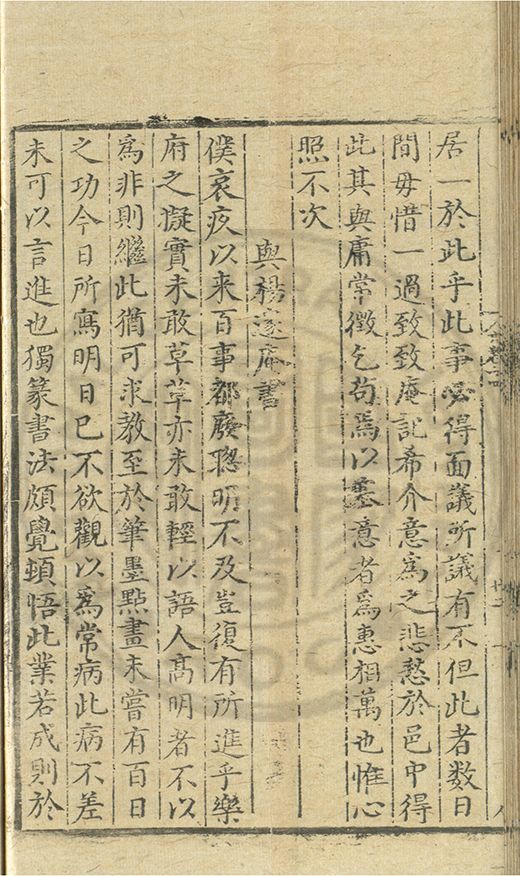 居一於此乎此事必得面議所議有不但此者數日
間毋惜一過致致庵記希介意爲之悲愁於邑中得
此其與庸常徵乞苟焉以塞意者爲惠相萬也惟心
照不次
與楊邃庵書
僕哀疚以来百事都廢聦明不及豈復有所進乎樂
府之擬實未敢草草亦未敢輕以語人髙明者不以
爲非則繼此猶可求教至於筆墨㸃畫未嘗有百日
之功今日所寫明日已不欲觀以爲常病此病不差
未可以言進也獨篆書法頗覺頓悟此業若成則於